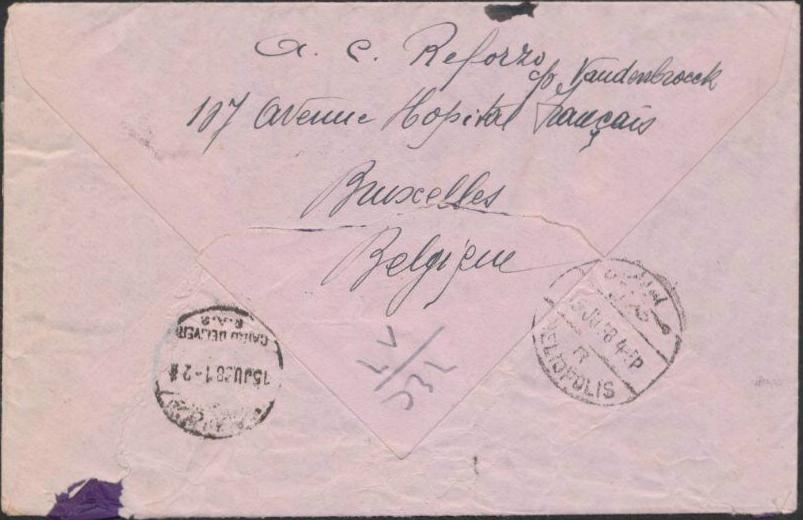 A. C. Reforzo
c/o Vandenbroeck
107 Avenue Hopital Français
Bruxelles
Belgique
CAIRO DELIVER
R.A.S
15 JU.38 1-2
JU 38 4-5P
R
HELIOPOLIS